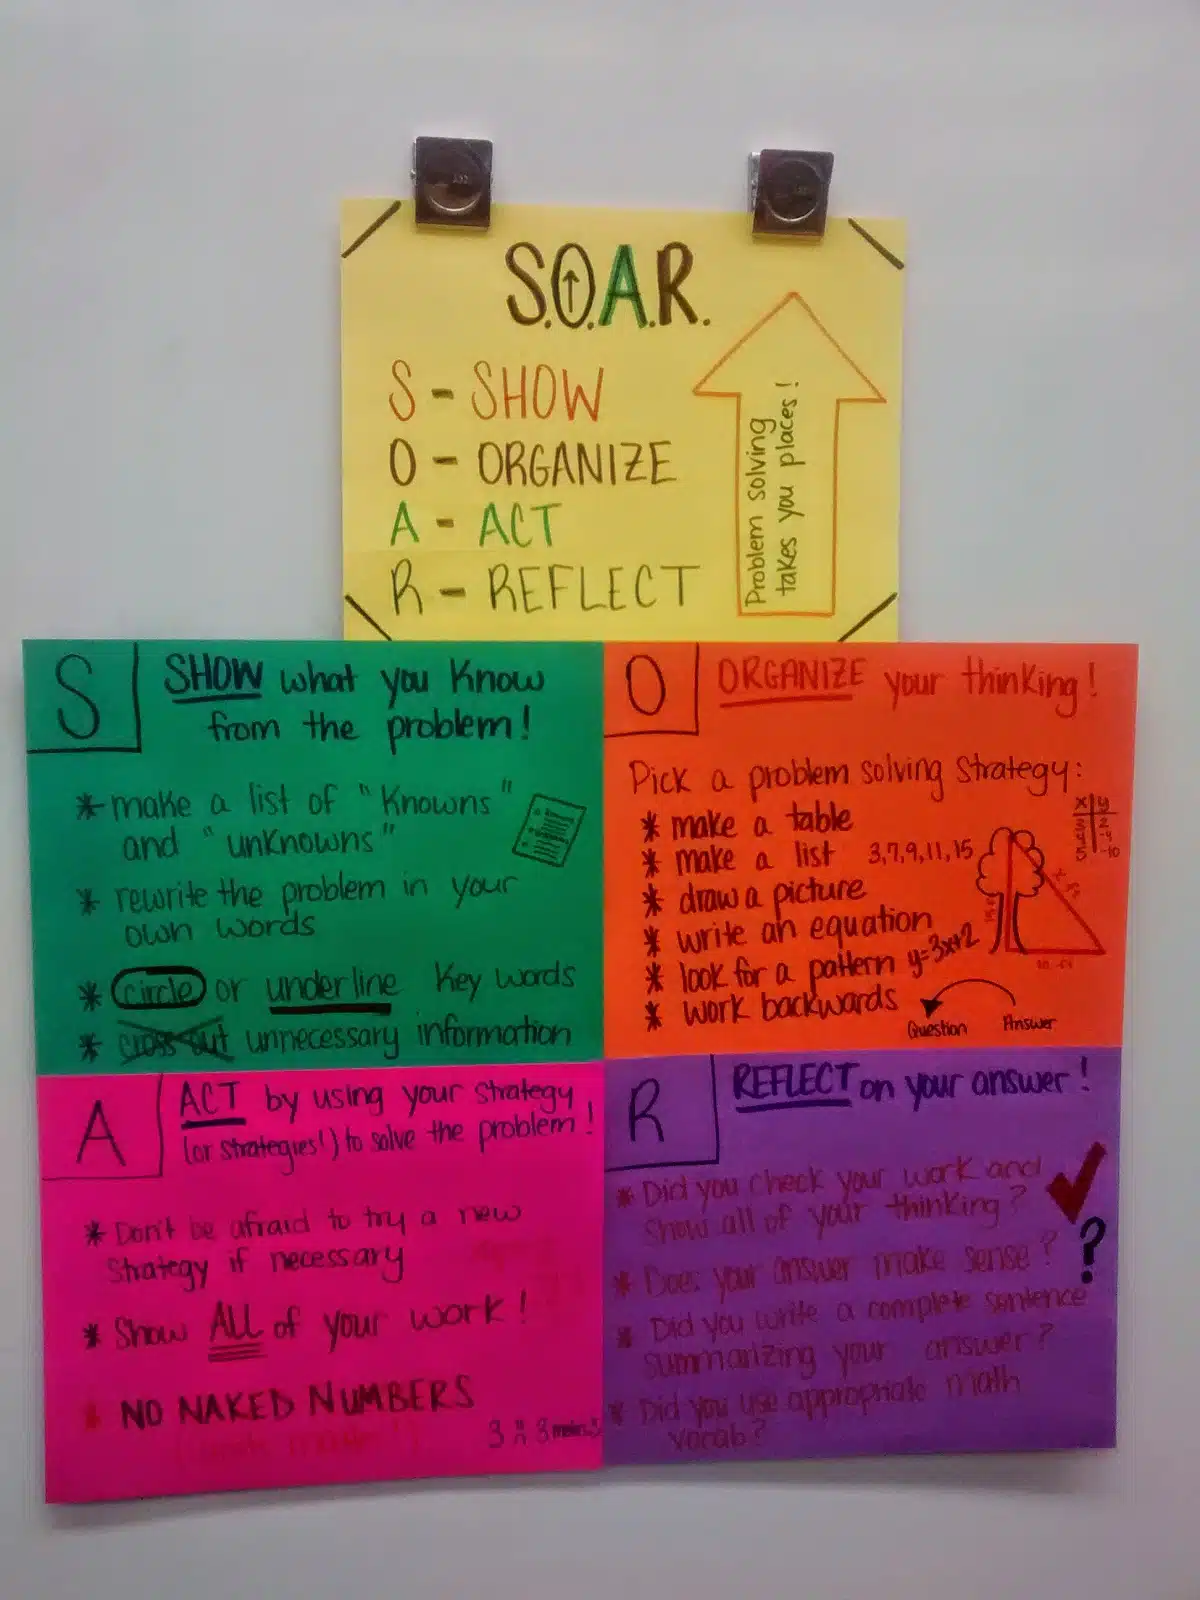 S.O.A.R.
S - SHOW
O - ORGANIZE
A - ACT
R - REFLECT
Problem solving
takes you places!
S
SHOW what you know
from the problem!
* make a list of "Knowns"
and "unknowns"
* rewrite the problem in your
own words
* circle or underline key words
* cross out unnecessary information
O
ORGANIZE your thinking!
Pick a problem solving strategy:
* make a table
* make a list 3,7,9,11,15
* draw a picture
* write an equation
* look for a pattern y=3x+2
* work backwards
Question Answer
x y
A
ACT by using your strategy
(or strategies!) to solve the problem!
* Don't be afraid to try a new
strategy if necessary
* Show ALL of your work!
* NO NAKED NUMBERS
R
REFLECT on your answer!
* Did you check your work and
show all of your thinking?
* Does your answer make sense?
?
* Did you write a complete sentence
summarizing your answer?
* Did you use appropriate math
vocab?